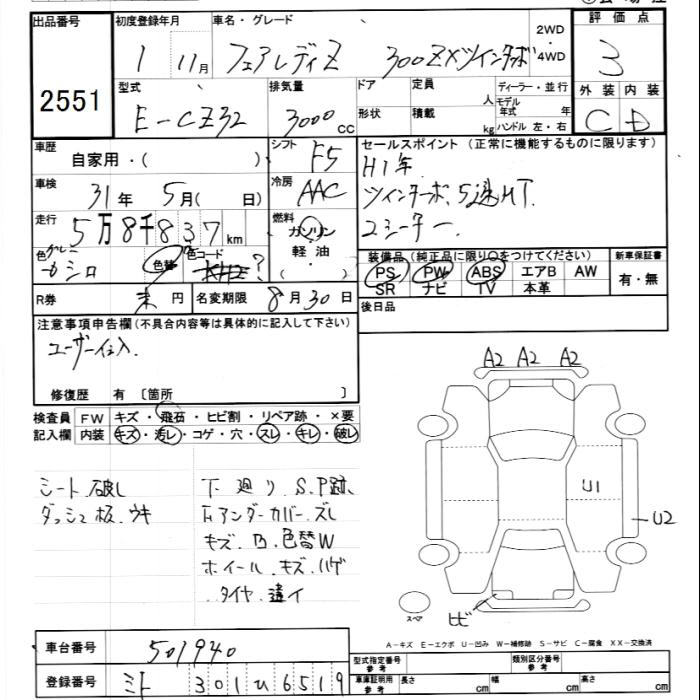 出品番号 初度登録年月 車名・グレード 2WD・4WD 評価点
2551 1 11月 フェアレディZ 300ZXツインターボ 3
型式 排気量 ドア 定員 人 ディーラー・並行 外装 内装
E-CZ32 3000cc 形状 積載 kg モデル年式 年 ハンドル 左・右 C D
車歴 自家用・( ) シフト F5 セールスポイント(正常に機能するものに限ります)
車検 31年 5月( 日) 冷房 AAC H1年
走行 5万8千837km 燃料 ガソリン 軽油 ・( ) ツインターボ、5速MT.
2シーター.
色 シロ 色替 色コード ? 装備品(純正品に限り○をつけてください) 新車保証書
PS PW ABS エアB AW 有・無
SR ナビ TV 本革
R券 未 円 名変期限 8月30日 後日品
注意事項申告欄(不具合内容等は具体的に記入して下さい)
ユーザー仕入.
修復歴 有〔箇所 〕
検査員 FW キズ・飛石・ヒビ割・リペア跡・×要
記入欄 内装 キズ・汚レ・コゲ・穴・スレ・キレ・破レ
A2 A2 A2
U1
U2
シート破レ 下廻り.S.P跡、
ダッシュ板.ウキ Fアンダーカバー.ズレ
キズ.凹.色替W
ホイール.キズ.ハゲ
タイヤ.違イ
スペア
ヒビ
A-キズ E-エクボ U-凹み W-補修跡 S-サビ C-腐食 XX-交換済
車台番号 501940 型式指定番号 参考 類別区分番号 参考
登録番号 ミト 301 ひ 6519 車庫証明用 参考 長さ cm 幅 cm 高さ cm